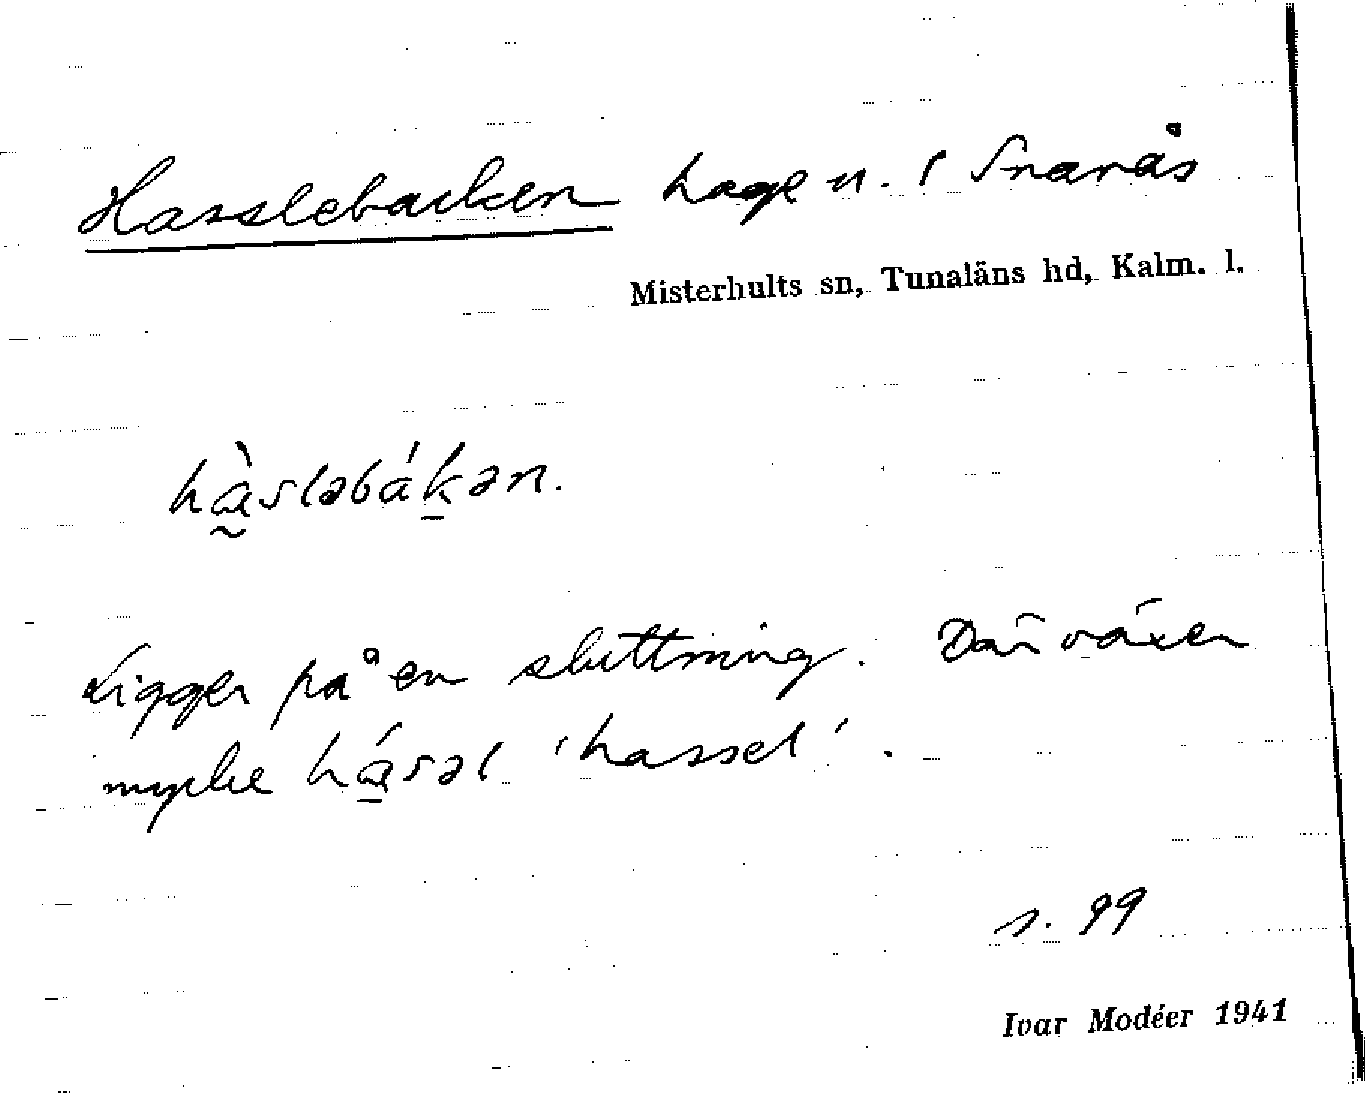 Hasslebacken hage u. i Snarås
Misterhults sn, Tunaläns hd, Kalm. l.
hà̰sləbák̲ən.
Ligger på en sluttning. Där växer
mycke há̲səl 'hassel'.
s. 99
Ivar Modéer 1941